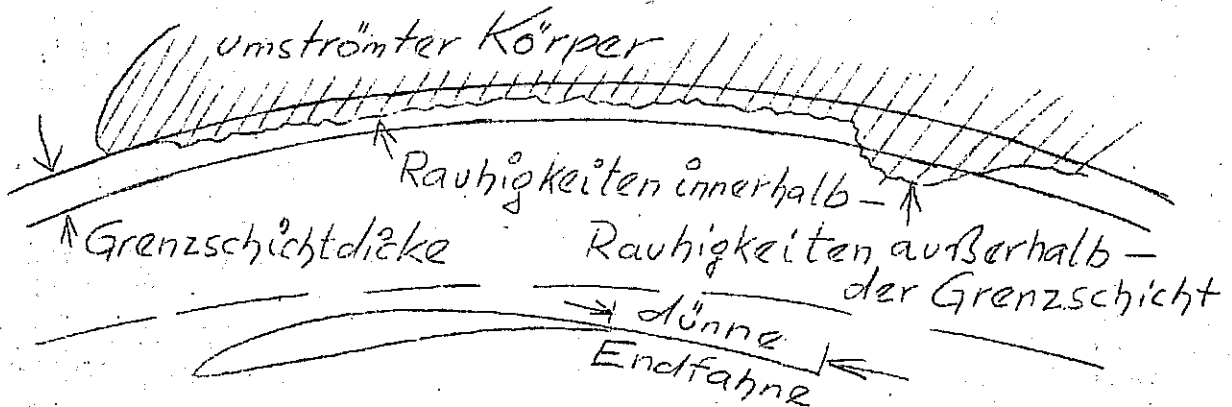 umströmter Körper
Rauhigkeiten innerhalb –
Grenzschichtdicke
Rauhigkeiten außerhalb –
der Grenzschicht
dünne
Endfahne